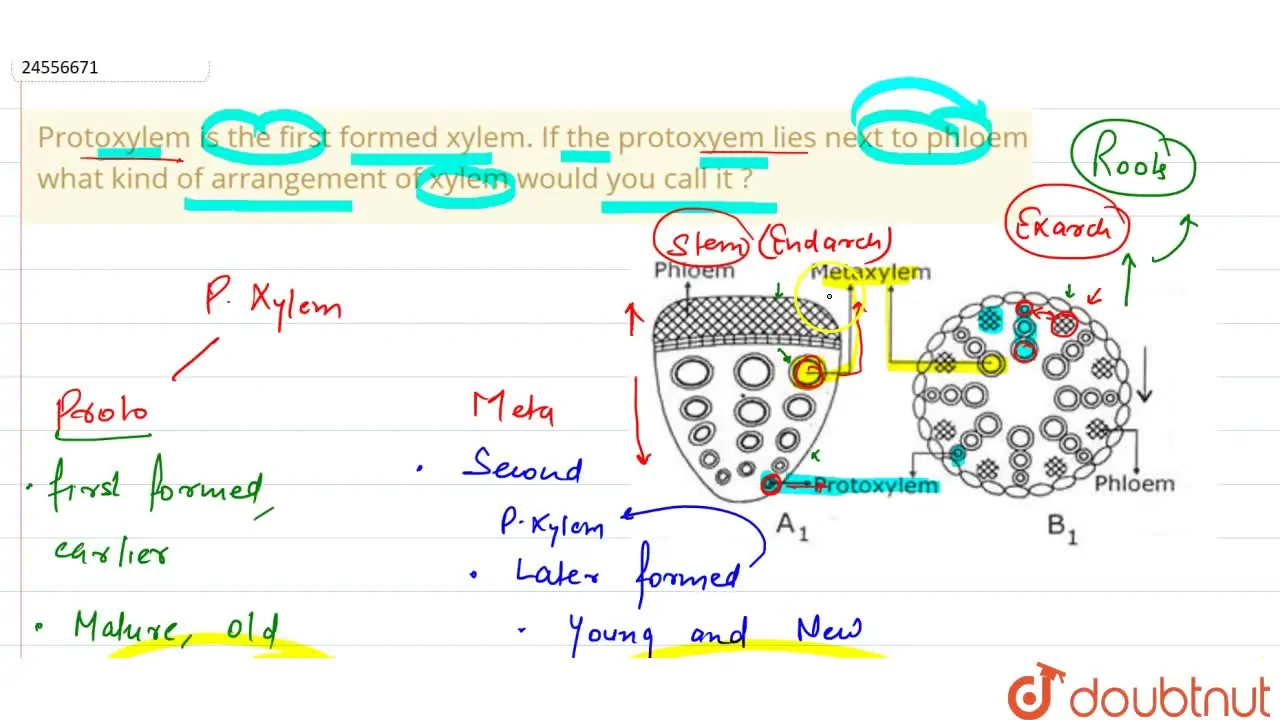 24556671
Protoxylem is the first formed xylem. If the protoxyem lies next to phloem
what kind of arrangement of xylem would you call it ?
Roots
Exarch
Stem (Endarch)
Phloem
Metaxylem
P. Xylem
Proto
Meta
First formed,
earlier
Mature, old
Second
P. Xylem
Later formed
Young and New
Protoxylem
Phloem
A1
B1
doubtnut